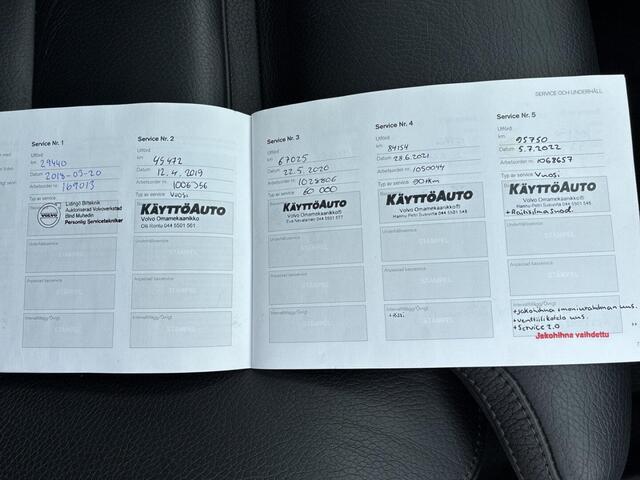 SERVICE OCH UNDERHÅLL
Service Nr. 1
Utförd
km 29440
Datum 2018-03-20
Arbetsorder nr. 169013
Typ av service
Lidingö Bilteknik
Auktoriserad Volvoverkstad
Bind Muhedin
Personlig Servicetekniker
VOLVO
Underhållsservice
STÄMPEL
Anpassad basservice
STÄMPEL
Intervalltillägg/Övrigt
STÄMPEL
Service Nr. 2
Utförd
km 45472
Datum 12.4.2019
Arbetsorder nr. 1006356
Typ av service Vuosi
KÄYTTÖAUTO
Volvo Omamekaanikko
Olli Rontu 044 5501 561
Underhållsservice
STÄMPEL
Anpassad basservice
STÄMPEL
Intervalltillägg/Övrigt
STÄMPEL
Service Nr. 3
Utförd
km 67025
Datum 22.5.2020
Arbetsorder nr. 1028806
Typ av service 60 000
KÄYTTÖAUTO
Volvo Omamekaanikko®
Underhållsservice
STÄMPEL
Anpassad basservice
STÄMPEL
Intervalltillägg/Övrigt
STÄMPEL
Service Nr. 4
Utförd
km 84154
Datum 28.6.2021
Arbetsorder nr. 1050044
Typ av service 90tkm
KÄYTTÖAUTO
Volvo Omamekaanikko®
Underhållsservice
STÄMPEL
Anpassad basservice
STÄMPEL
Intervalltillägg/Övrigt
Service Nr. 5
Utförd
km 95750
Datum 5.7.2022
Arbetsorder nr. 1068657
Typ av service Vuosi
KÄYTTÖAUTO
Volvo Omamekaanikko®
+Raitisilmasuod.
Underhållsservice
STÄMPEL
Anpassad basservice
STÄMPEL
Intervalltillägg/Övrigt
+jakohihna + moniurahihnan uus.
+venttiilikotelo uus.
+Service 2.0
Jakohihna vaihdettu